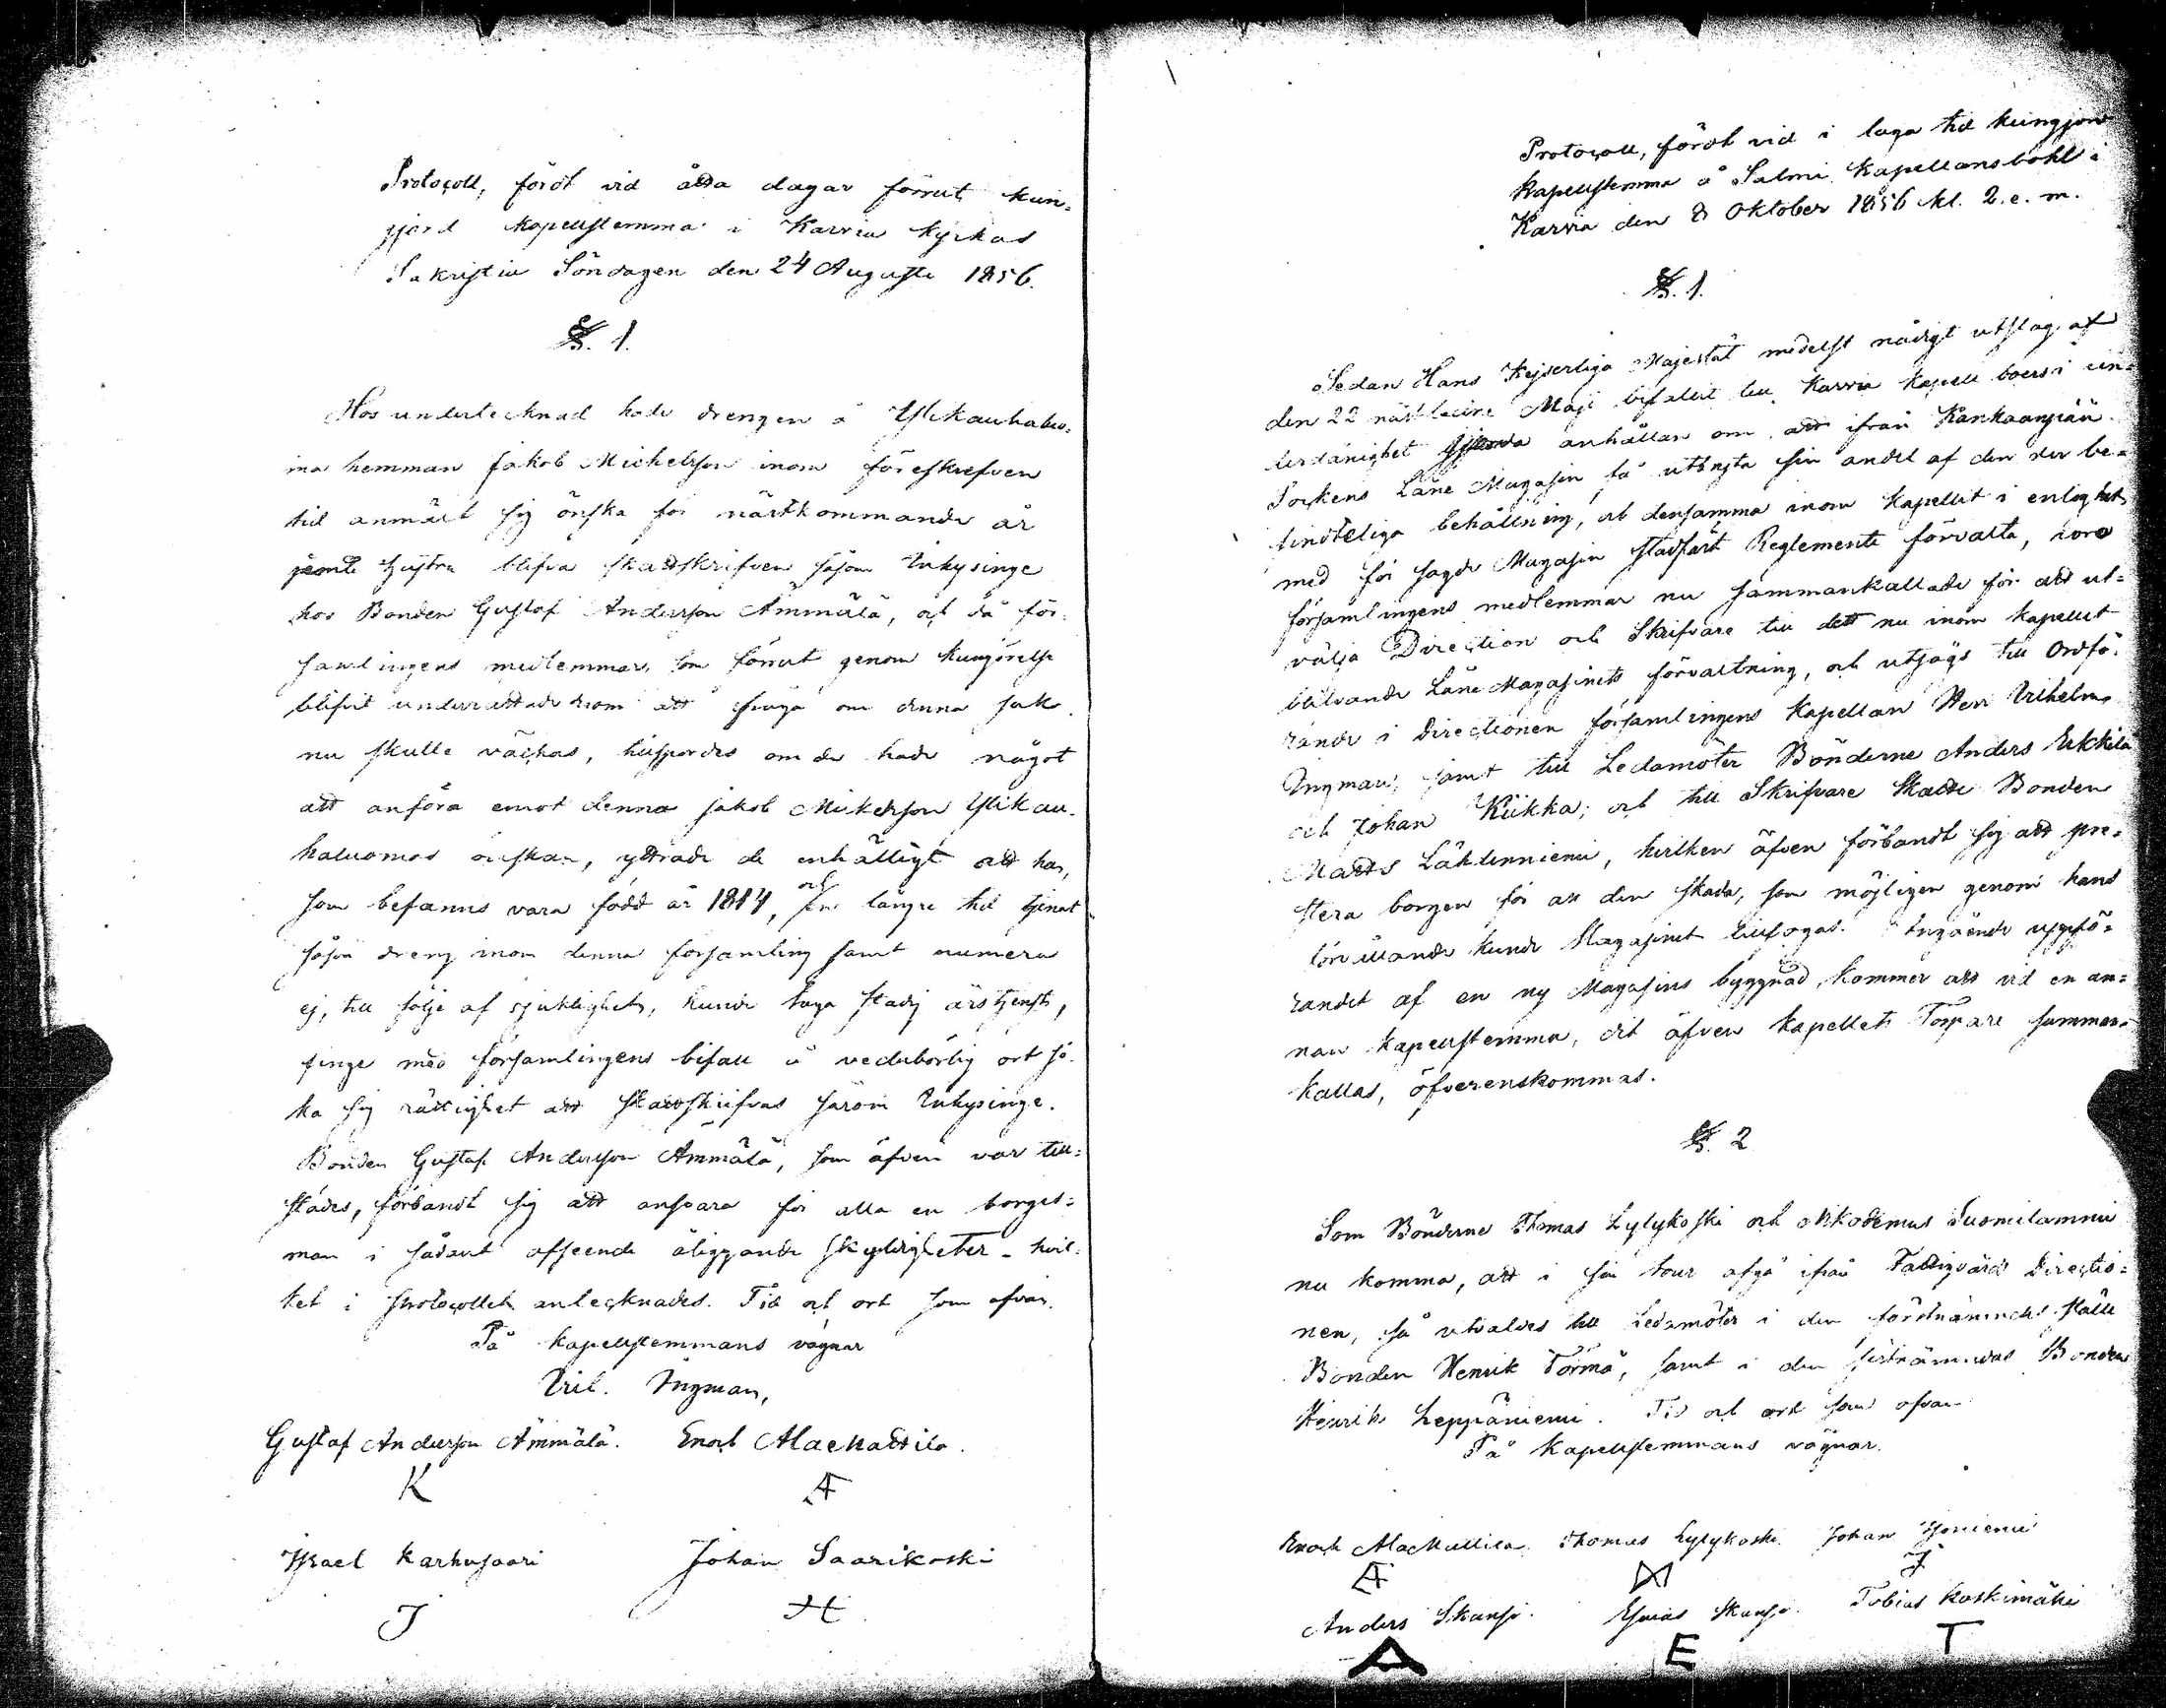 Protocoll, fördt vid åtta dagar förrut kun-
gjord kapellstemma i Karvia kyrkas
Sakristia Söndagen den 24 Augusti 1856.
§. 1.
Hos undertecknad hade drengen å Ylikauhaluo-
ma hemman Jakob Michelsson inom föreskrefven
tid anmält sig önska för nästkommande år
jemte hustru blifva skattskrifven såsom Inhysinge
hos Bonden Gustaf Andersson Ämmälä, och då för-
samlingens medlemmar, som förrut genom kungörelse
blifvit underrättade derom att fråga om denna sak
nu skulle väckas, hufspordes om de hade något
att anföra emot denna Jakob Mickelsson Ylikau-
haluomas önskan, yttrade de enhälligt att han,
som befanns vara född år 1814, och en längre tid tjenat
såsom dreng inom denna församling samt numera
ej, till följe af sjuklighet, kunde taga stadig årstjenst,
finge med församlingens bifall å vederbörlig ort sö-
ka sig rättighet att skattskrifvas såsom Inhysinge.
Bonden Gustaf Andersson Ämmälä, som äfven var till-
städes, förbandt sig att ansvara för alla en borges-
man i sådant afseende åliggande skyldigheter - hvil-
ket i protocollet antecknades. Tid och ort som ofvan.
På kapellstemmans vägnar
Vilh. Ingman,
Gustaf Andersson Ämmälä. Enoch AlaMattila.
K A
Israel Karhusaari Johan Saarikoski
J H
Protocoll, fördt vid i laga tid kungjord
kapellstemma å Salmi Kapellansbohl i
Karvia den 8 Oktober 1856 kl. 2. e. m.
§. 1.
Sedan Hans Kejserliga Majestät medelst nådigt utslag af
den 22 nästledne Maji bifallit till Karvia kapell boers i un-
derdånighet gjorda anhållan om att ifrån Kankaanpää
Sockens Låne Magasin få utbryta sin andel af den der be-
findteliga behållning, och densamma inom kapellet i enlighet
med för sagde Magasin stadfäst Reglemente förvalta, voro
församlingens medlemmar nu sammankallade för att ut-
välja Direction och Skrifvare till dett nu inom kapellet
blifvande Låne Magasinets förvaltning, och utsågs till Ordfö-
rande i Directionen församlingens Kapellan Herr Vilhelm
Ingman, samt till Ledamöter Bönderne Anders Erkkilä
och Johan Kiikka; och till Skrifvare Skatte Bonden
Matts Lähdenniemi, hvilken äfven förbandt sig att pre-
stera borgen för all den skada, som möjligen genom hans
förvållande kunde Magasinet tillfogas. Angående uppfö-
randet af en ny Magasins byggnad, kommer att vid en an-
nan kapellstemma, dit äfven kapellets Torpare samman-
kallas, öfverenskommas.
§. 2
Som Bönderne Thomas Lylykoski och Nikodemus Suomilammi
nu komma, att i sin tour afgå ifrån Fattigvårds Directio-
nen, så utvaldes till Ledamöter i den förstnämndes ställe
Bonden Henrik Törmä, samt i den sistnämndas Bonden
Henrik Leppäniemi. Tid och ort som ofvan
På kapellstemmans vägnar.
Enoch AlaMattila. Thomas Lylykoski. Johan
A J
Anders Skansi. Esaias Skansi. Tobias Koskimäki
A E T